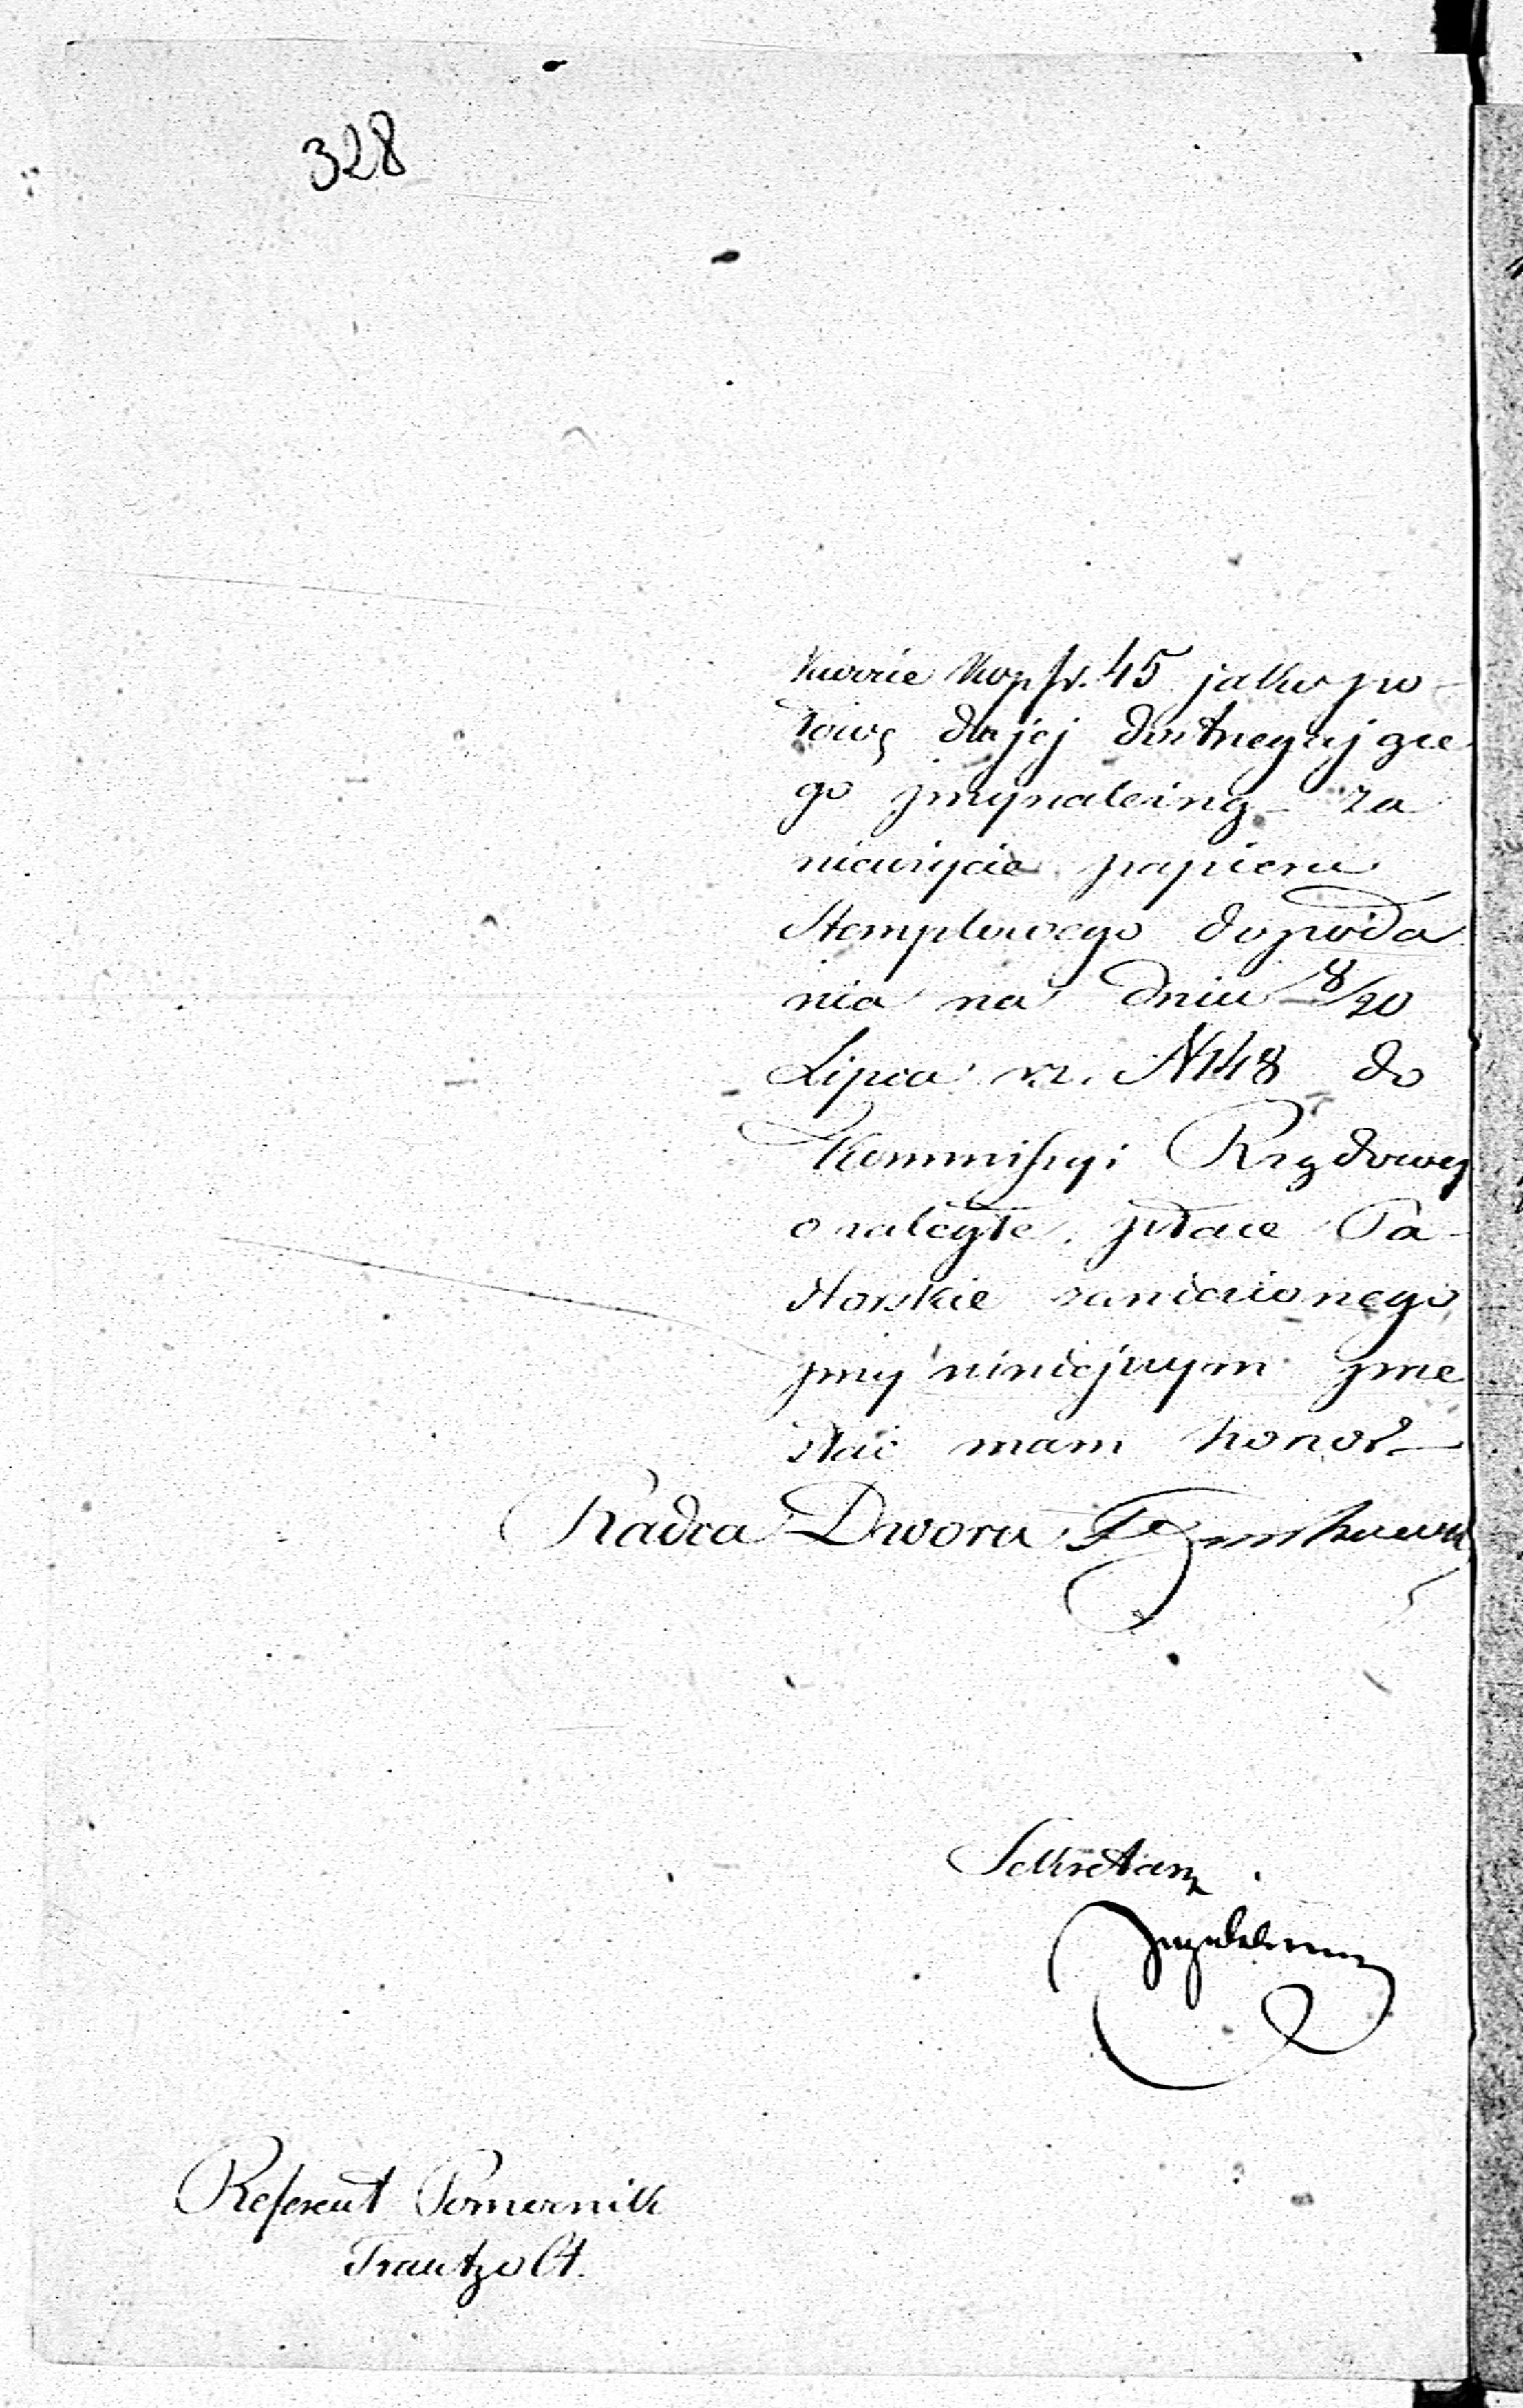 328
kwocie kop sr. 45 jako po-
łowę dla jej dostrzegające-
go przynależną za
nieużycie papieru
Stemplowego do poda
nia na dniu 8/20
Lipca r.z. N 148 do
Kommissyi Rządowey
o zaległe płace Pa-
storskie zanieśionego
przy niniejszym prze
słać mam honor
Radca Dworu
Sekretarz
Referent Pomocnik
Trautzolt.